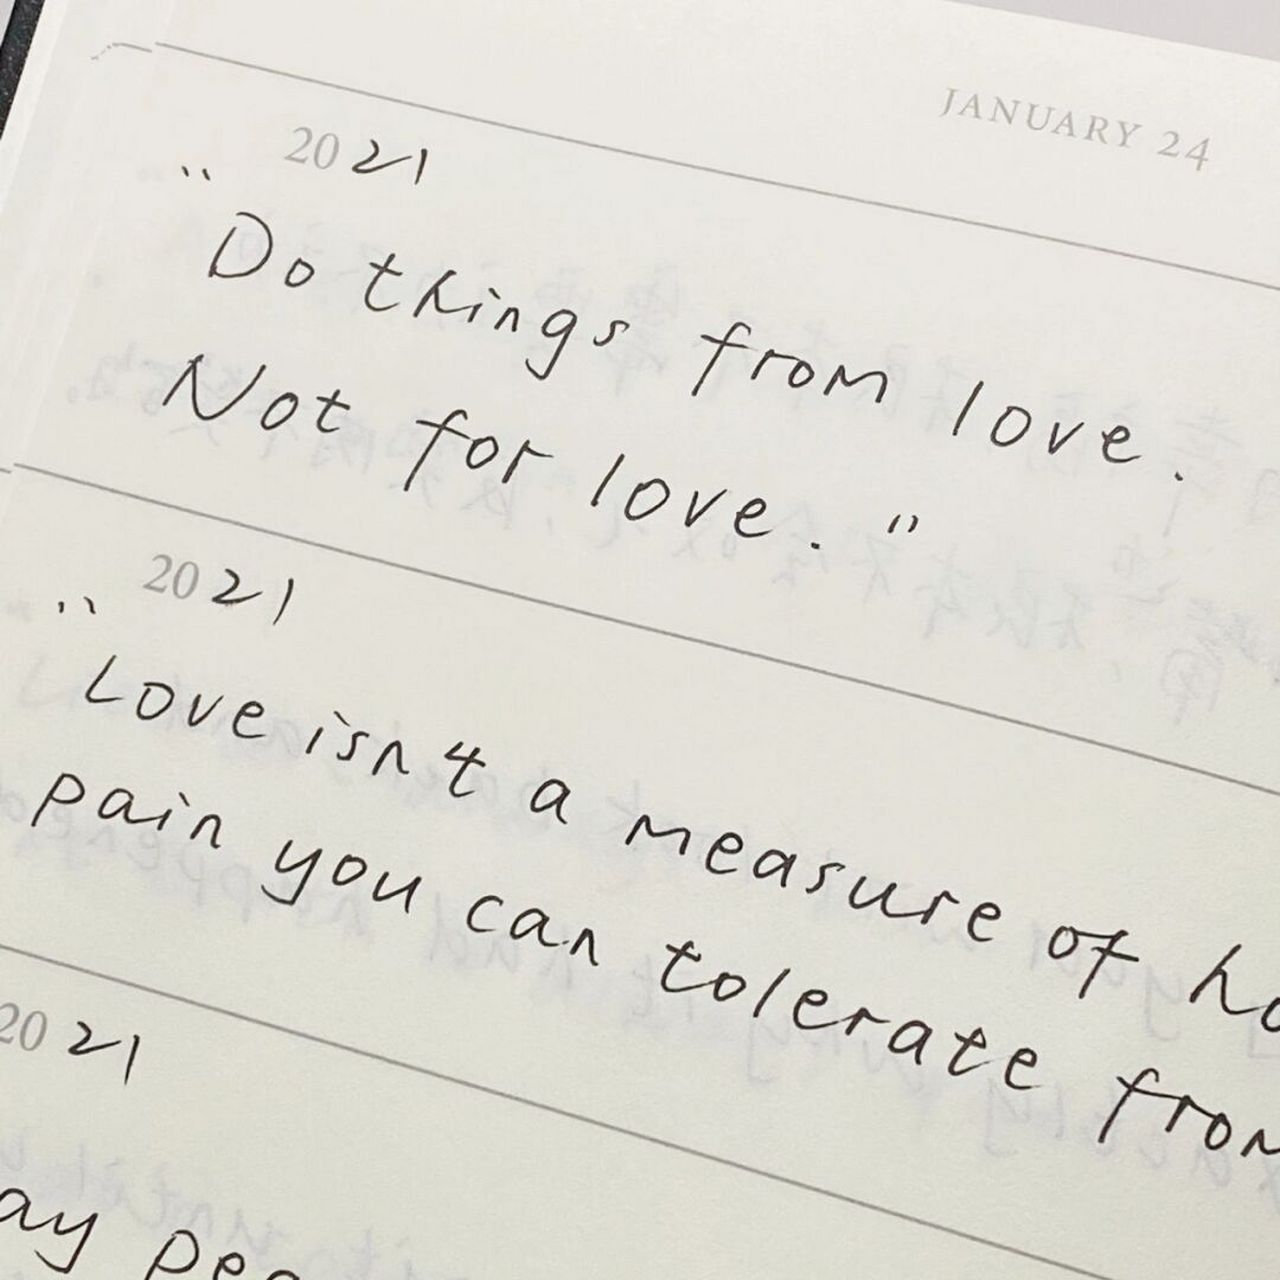 JANUARY 24
2021
"Do things from love.
Not for love."
2021
"Love isn't a measure of
pain you can tolerate from
2021